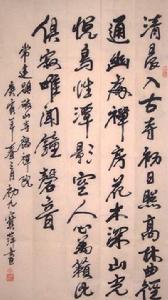 清晨入古寺初日照高林曲徑
通幽處禪房花木深山光
悅鳥性潭影空人心萬籟此
俱寂唯聞鐘磬音
常建題破山寺後禪院
庚寅年夏月初九